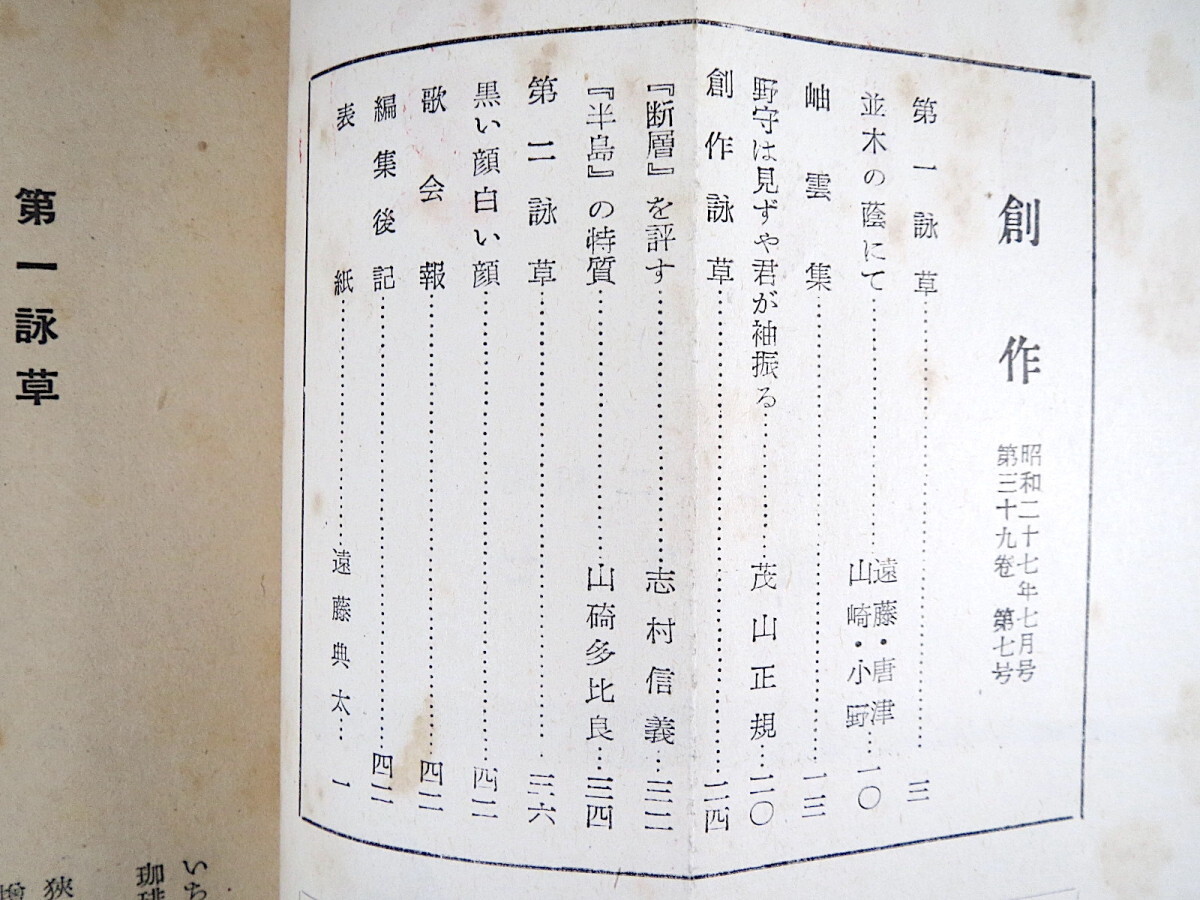 創作
昭和二十七年七月号
第三十九巻 第七号
第一詠草……三
並木の蔭にて……遠藤・唐津
山崎・小野…一〇
岫雲集……一三
野守は見ずや君が袖振る……茂山正規…二〇
創作詠草……二四
『断層』を評す……志村信義…三二
『半島』の特質……山碕多比良…三四
第二詠草……三六
黒い顔白い顔……四二
歌会報……四二
編集後記……四二
表紙……遠藤典太…一
第一詠草
いち
珈琲
狭